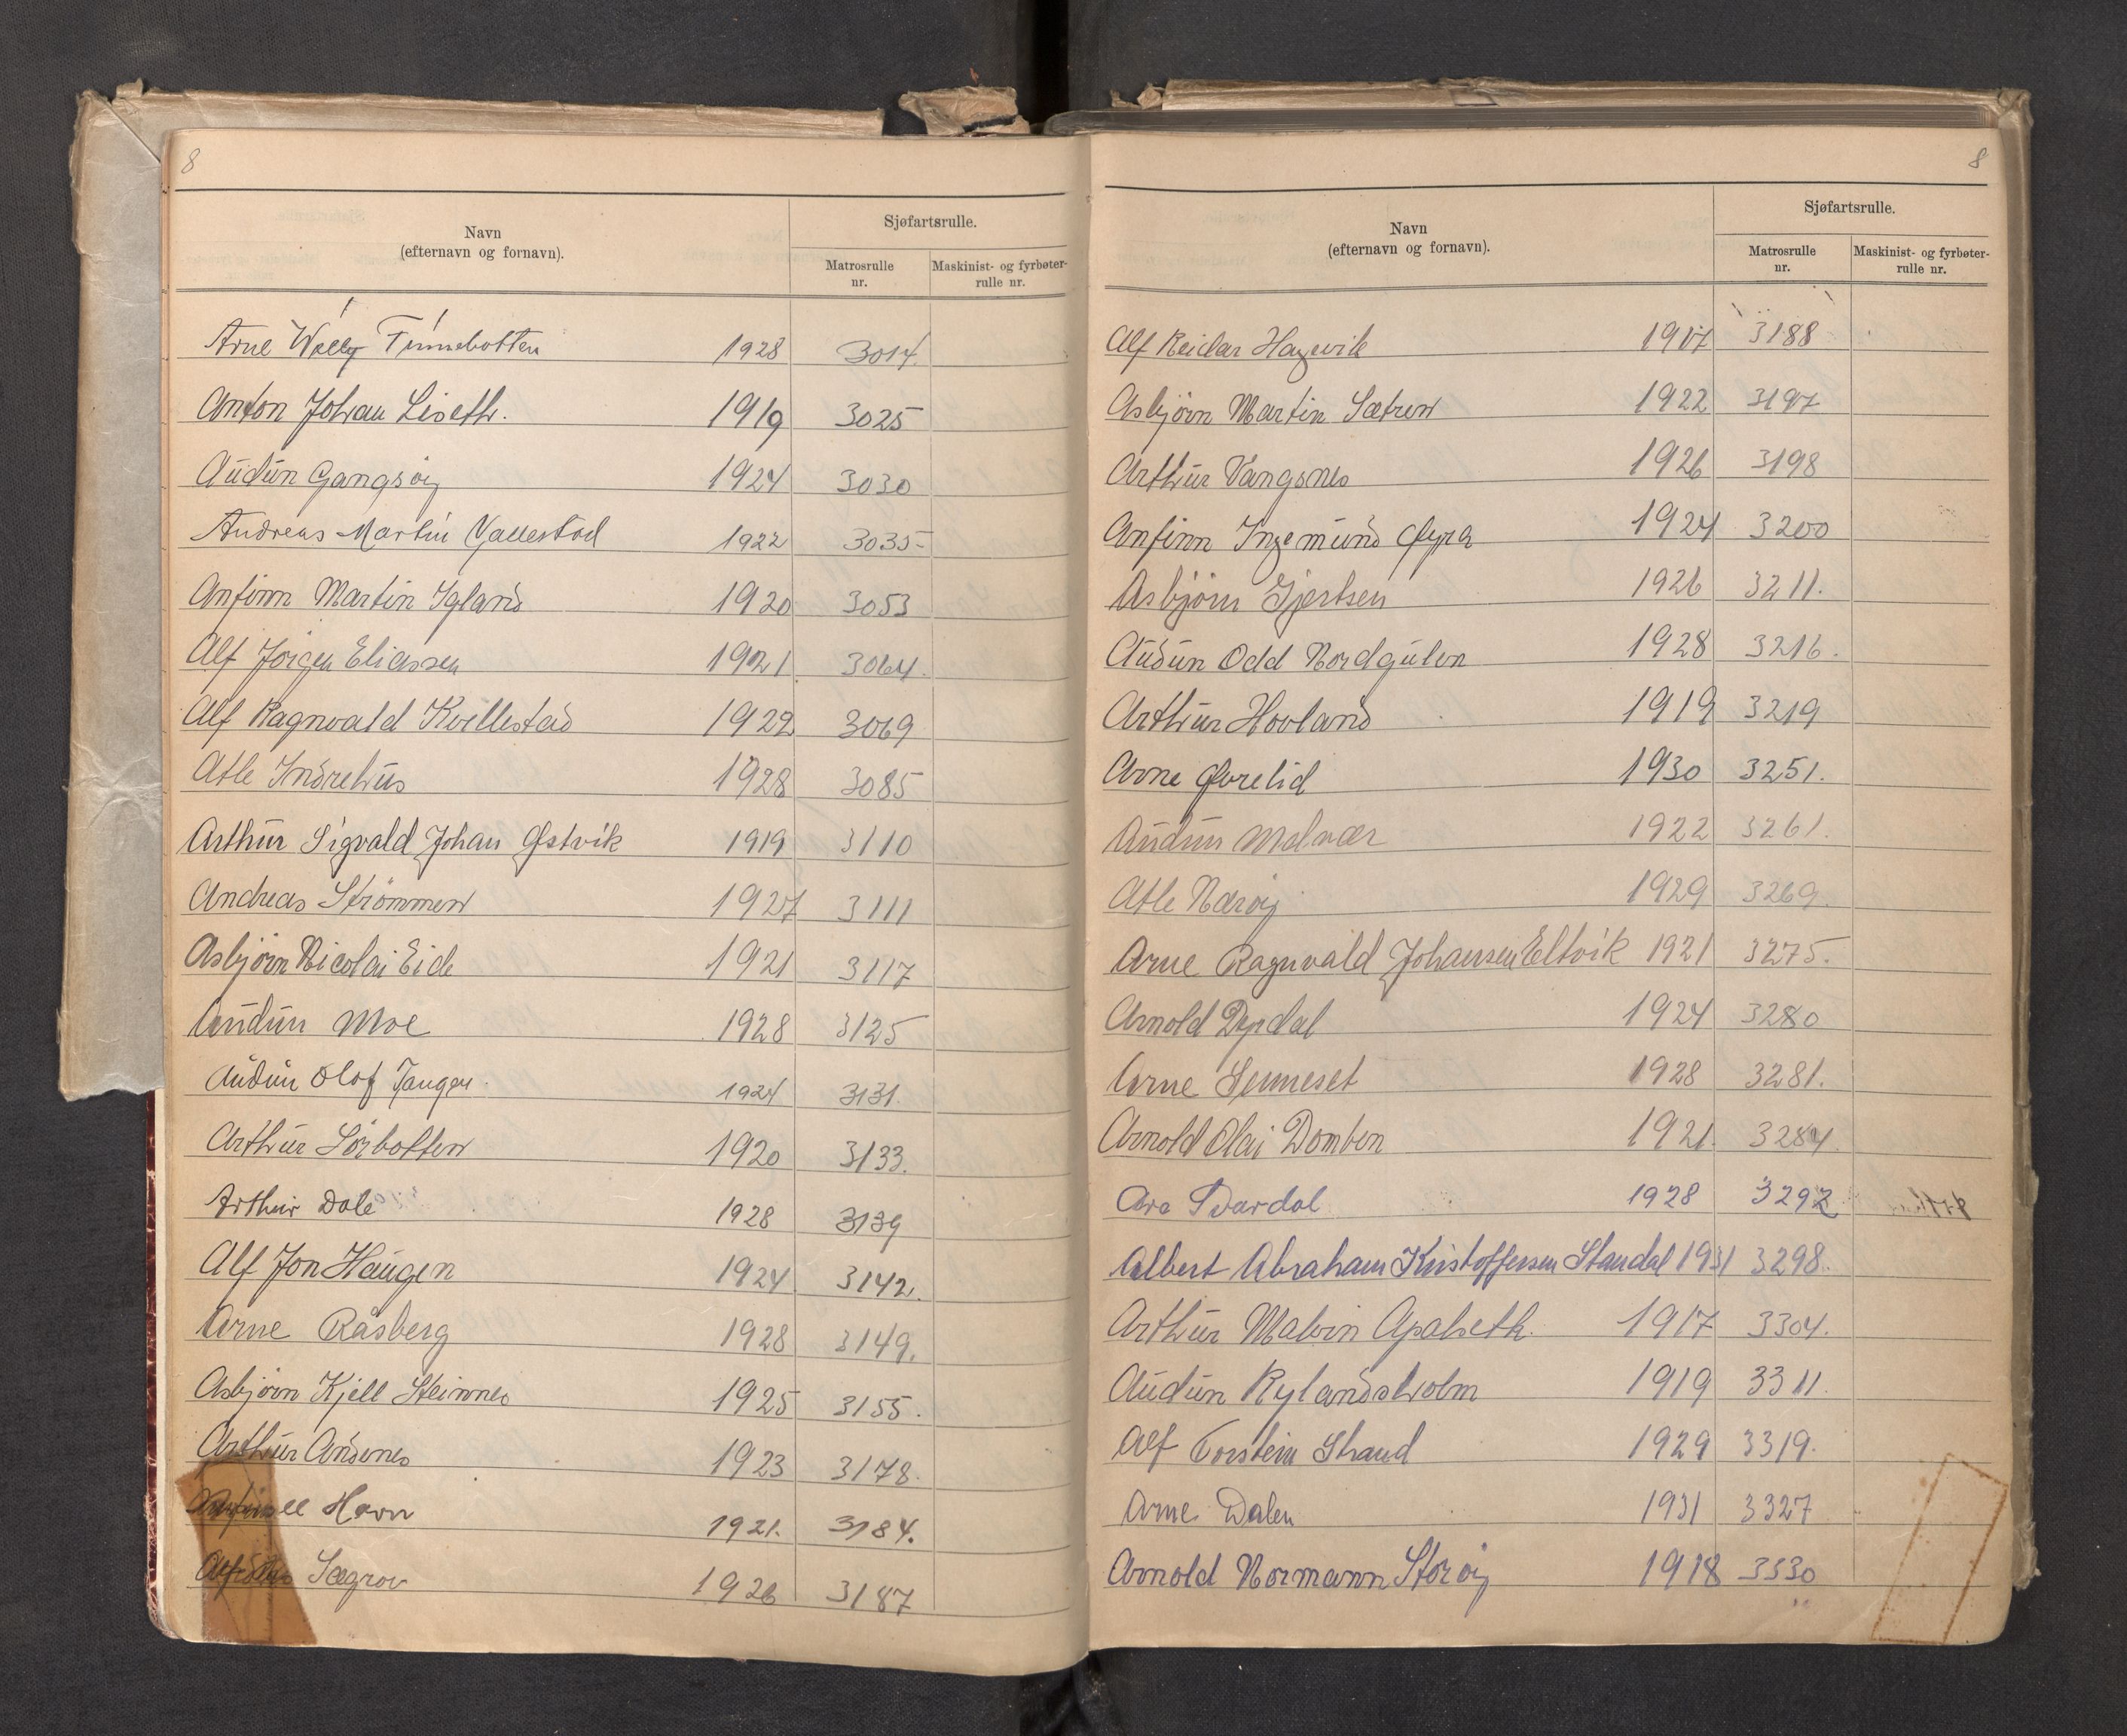 8
Navn
(efternavn og fornavn).
Sjøfartsrulle.
Matrosrulle
nr.
Maskinist- og fyrbøter-
rulle nr.
Arne Willy Tinnebotten 1928 3014.
Anton Johan Liseth. 1919 3025
Audun Gangsøy 1924 3030
Andreas Martin Vallestad 1922 3035
Anfinn Martin Igland 1920 3053
Alf Jørgen Eliassen 1921 3064.
Alf Ragnvald Kvillestad 1922 3069
Atle Indrehus 1928 3085
Arthur Sigvald Johan Østvik 1919 3110
Andreas Strømmen 1927 3111
Asbjørn Nicolai Eide 1921 3117
Audun Moe 1928 3125
Audun Olaf Tangen 1924 3131.
Arthur Sørbotten 1920 3133.
Arthur Dale 1928 3139
Alf Jon Haugen 1924 3142.
Arne Råsberg 1928 3149.
Asbjørn Kjell Steinnes 1925 3155.
Arthur Ansnes 1923 3178.
Havn 1921. 3184.
Sægrov 1926 3187
8
Navn
(efternavn og fornavn).
Sjøfartsrulle.
Matrosrulle
nr.
Maskinist- og fyrbøter-
rulle nr.
Alf Reidar Hagevik 1917 3188
Asbjørn Martin Sætren 1922 3197
Arthur Vangsnes 1926 3198
Anfinn Ingemund Øyra 1924 3200
Asbjørn Gjertsen 1926 3211.
Audun Odd Nordgulen 1928 3216.
Arthur Hovland 1919 3219
Arne Øvrelid 1930 3251.
Audun Melvær 1922 3261.
Atle Nærøy 1929 3269.
Arne Ragnvald Johansen Eltvik 1921 3275.
Arnold Dyrdal 1924 3280
Arne Senneset 1928 3281.
Arnold Olai Domben 1921. 3284.
Are Svardal 1928 3292
Albert Abraham Kristoffersen Standal 1931 3298.
Arthur Malvin Apalseth. 1917 3304.
Audun Rylandsholm 1919 3311
Alf Torstein Strand 1929 3319.
Arne Dalen 1931 3327
Arnold Normann Storøy 1918 3330